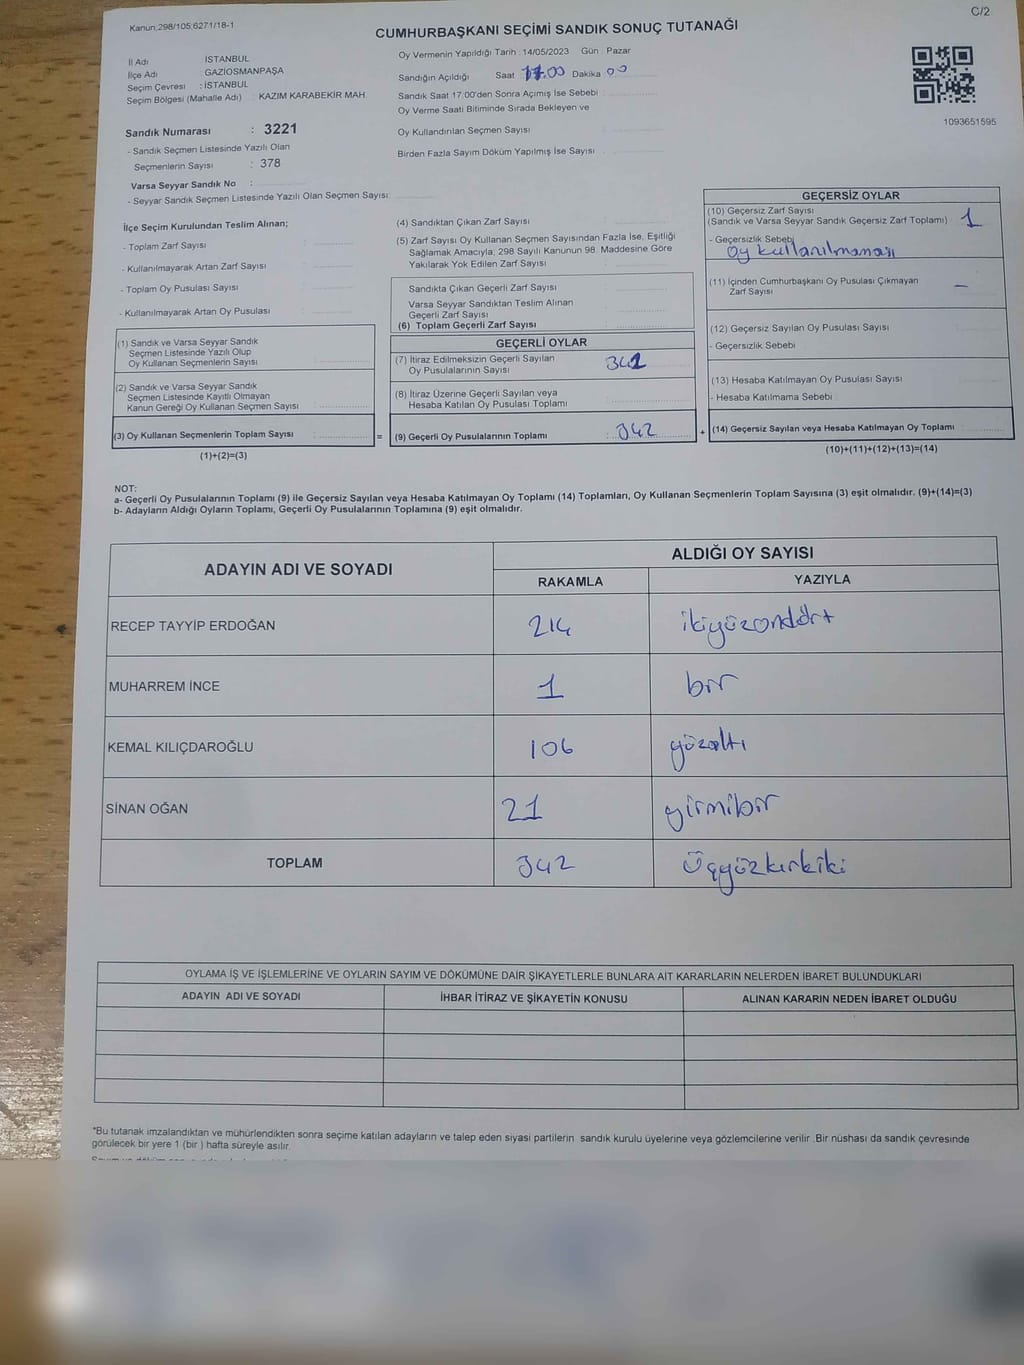 Kanun;298/105;6271/18-1
C/2
CUMHURBAŞKANI SEÇİMİ SANDIK SONUÇ TUTANAĞI
İl Adı İSTANBUL
İlçe Adı GAZİOSMANPAŞA
Seçim Çevresi : İSTANBUL
Seçim Bölgesi (Mahalle Adı) : KAZIM KARABEKİR MAH.
Sandık Numarası : 3221
- Sandık Seçmen Listesinde Yazılı Olan
Seçmenlerin Sayısı : 378
Varsa Seyyar Sandık No :
- Seyyar Sandık Seçmen Listesinde Yazılı Olan Seçmen Sayısı:
Oy Vermenin Yapıldığı Tarih : 14/05/2023 Gün : Pazar
Sandığın Açıldığı Saat 17.00 Dakika 00
Sandık Saat 17.00'den Sonra Açımış İse Sebebi :
Oy Verme Saati Bitiminde Sırada Bekleyen ve
Oy Kullandırılan Seçmen Sayısı
Birden Fazla Sayım Döküm Yapılmış İse Sayısı
1093651595
İlçe Seçim Kurulundan Teslim Alınan;
- Toplam Zarf Sayısı :
- Kullanılmayarak Artan Zarf Sayısı :
- Toplam Oy Pusulası Sayısı :
- Kullanılmayarak Artan Oy Pusulası :
(1) Sandık ve Varsa Seyyar Sandık
Seçmen Listesinde Yazılı Olup
Oy Kullanan Seçmenlerin Sayısı :
(2) Sandık ve Varsa Seyyar Sandık
Seçmen Listesinde Kayıtlı Olmayan
Kanun Gereği Oy Kullanan Seçmen Sayısı :
(3) Oy Kullanan Seçmenlerin Toplam Sayısı :
(1)+(2)=(3)
=
(4) Sandıktan Çıkan Zarf Sayısı
(5) Zarf Sayısı Oy Kullanan Seçmen Sayısından Fazla İse, Eşitliği
Sağlamak Amacıyla, 298 Sayılı Kanunun 98. Maddesine Göre
Yakılarak Yok Edilen Zarf Sayısı
Sandıkta Çıkan Geçerli Zarf Sayısı
Varsa Seyyar Sandıktan Teslim Alınan
Geçerli Zarf Sayısı
(6) Toplam Geçerli Zarf Sayısı
GEÇERLİ OYLAR
(7) İtiraz Edilmeksizin Geçerli Sayılan
Oy Pusulalarının Sayısı 342
(8) İtiraz Üzerine Geçerli Sayılan veya
Hesaba Katılan Oy Pusulası Toplamı
(9) Geçerli Oy Pusulalarının Toplamı : 342
+
GEÇERSİZ OYLAR
(10) Geçersiz Zarf Sayısı
(Sandık ve Varsa Seyyar Sandık Geçersiz Zarf Toplamı) 1
- Geçersizlik Sebebi
Oy kullanılmaması
(11) İçinden Cumhurbaşkanı Oy Pusulası Çıkmayan
Zarf Sayısı –
(12) Geçersiz Sayılan Oy Pusulası Sayısı
- Geçersizlik Sebebi
(13) Hesaba Katılmayan Oy Pusulası Sayısı
- Hesaba Katılmama Sebebi :
(14) Geçersiz Sayılan veya Hesaba Katılmayan Oy Toplamı :
(10)+(11)+(12)+(13)=(14)
NOT:
a- Geçerli Oy Pusulalarının Toplamı (9) ile Geçersiz Sayılan veya Hesaba Katılmayan Oy Toplamı (14) Toplamları, Oy Kullanan Seçmenlerin Toplam Sayısına (3) eşit olmalıdır. (9)+(14)=(3)
b- Adayların Aldığı Oyların Toplamı, Geçerli Oy Pusulalarının Toplamına (9) eşit olmalıdır.
ADAYIN ADI VE SOYADI
ALDIĞI OY SAYISI
RAKAMLA YAZIYLA
RECEP TAYYİP ERDOĞAN 214 ikiyüzondört
MUHARREM İNCE 1 bir
KEMAL KILIÇDAROĞLU 106 yüzaltı
SİNAN OĞAN 21 yirmibir
TOPLAM 342 Üçyüzkırkiki
OYLAMA İŞ VE İŞLEMLERİNE VE OYLARIN SAYIM VE DÖKÜMÜNE DAİR ŞİKAYETLERLE BUNLARA AİT KARARLARIN NELERDEN İBARET BULUNDUKLARI
ADAYIN ADI VE SOYADI İHBAR İTİRAZ VE ŞİKAYETİN KONUSU ALINAN KARARIN NEDEN İBARET OLDUĞU
*Bu tutanak imzalandıktan ve mühürlendikten sonra seçime katılan adayların ve talep eden siyasi partilerin sandık kurulu üyelerine veya gözlemcilerine verilir .Bir nüshası da sandık çevresinde
görülecek bir yere 1 (bir ) hafta süreyle asılır.